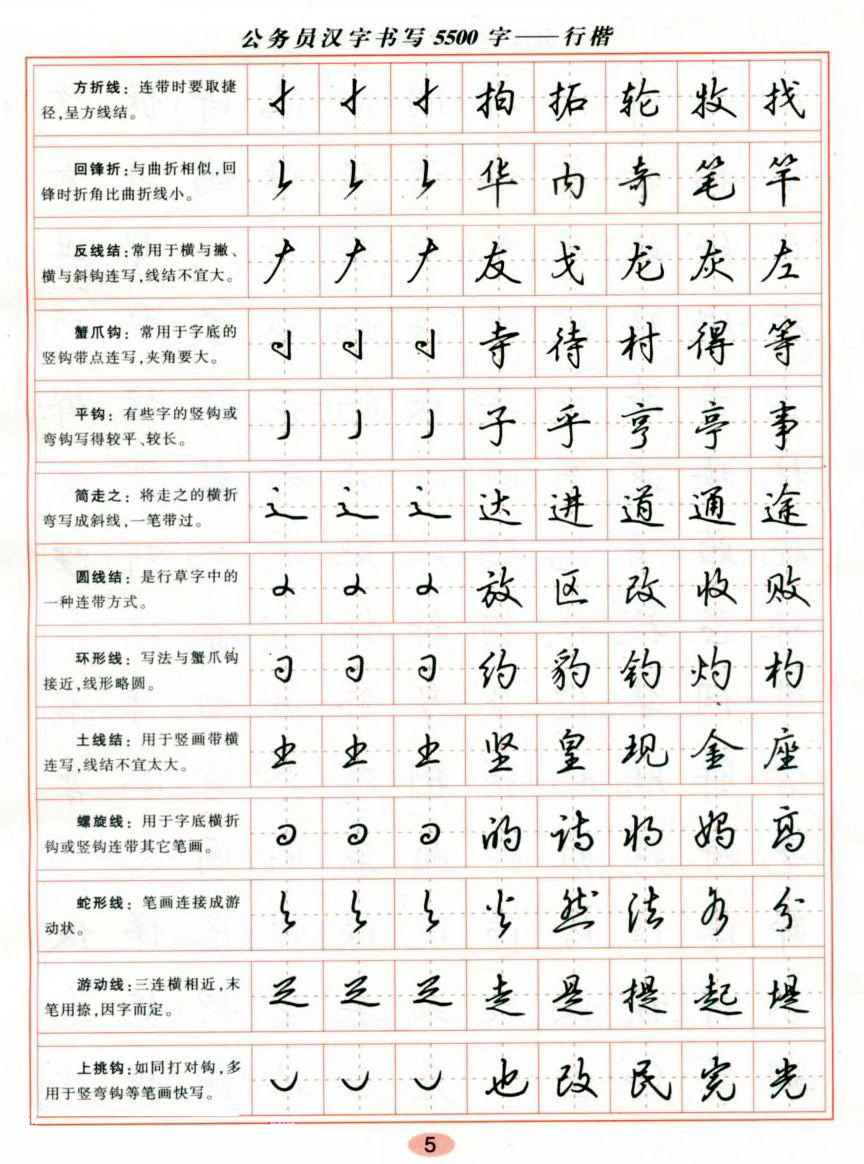 公务员汉字书写 5500 字——行楷
方折线：连带时要取捷
径,呈方线结。
拍 拓 轮 牧 找
回锋折：与曲折相似,回
锋时折角比曲折线小。
华 内 奇 笔 竿
反线结：常用于横与撇、
横与斜钩连写,线结不宜大。
友 戈 龙 灰 左
蟹爪钩：常用于字底的
竖钩带点连写,夹角要大。
寺 待 村 得 等
平钩：有些字的竖钩或
弯钩写得较平、较长。
子 乎 亨 亭 事
简走之：将走之的横折
弯写成斜线,一笔带过。
达 进 道 通 途
圆线结：是行草字中的
一种连带方式。
放 区 改 收 败
环形线：写法与蟹爪钩
接近,线形略圆。
约 豹 钓 灼 杓
土线结：用于竖画带横
连写,线结不宜太大。
坚 皇 现 金 座
螺旋线：用于字底横折
钩或竖钩连带其它笔画。
的 诗 将 妈 高
蛇形线：笔画连接成游
动状。
然 法 分
游动线：三连横相近,末
笔用捺,因字而定。
走 是 提 起 堤
上挑钩：如同打对钩,多
用于竖弯钩等笔画快写。
也 改 民 完 光
5